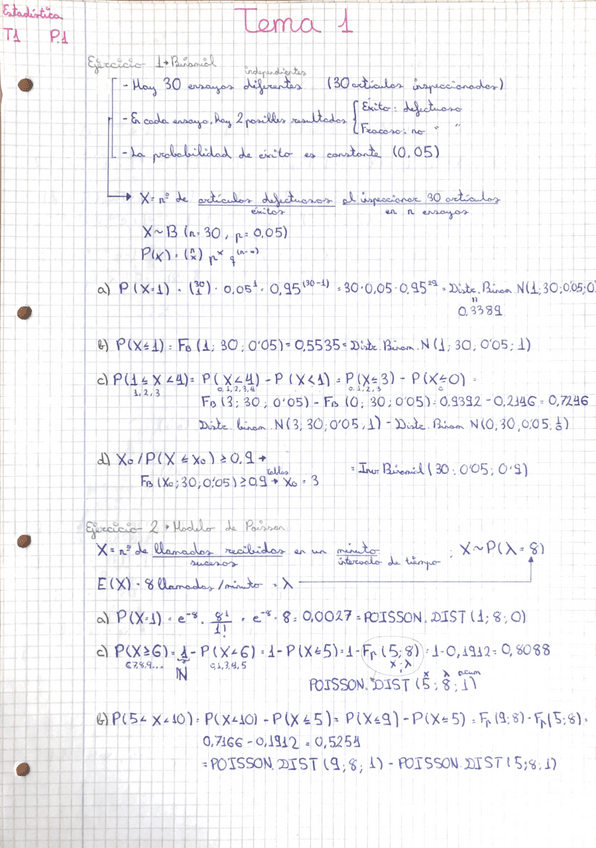 Estadística
T1 P.1
Tema 1
Ejercicio 1 → Binomial
independientes
- Hay 30 ensayos diferentes (30 artículos inspeccionados)
- En cada ensayo, hay 2 posibles resultados { Éxito: defectuoso
Fracaso: no " "
- La probabilidad de éxito es constante (0,05)
X = nº de artículos defectuosos al inspeccionar 30 artículos
éxitos en n ensayos
X ~ B (n = 30, p = 0,05)
P(x) = (n x) p^x q^(n-x)
a) P(X=1) = (30 1) · 0,05^1 · 0,95^(30-1) = 30·0,05·0,95^29 = Distr. Binom. N(1;30;0,05;0)
0,3389
b) P(X≤1) = FB (1; 30; 0'05) = 0,5535 = Distr. Binom. N(1; 30; 0'05; 1)
c) P(1≤X<4) = P(X<4) - P(X<1) = P(X≤3) - P(X≤0) =
1, 2, 3 0,1,2,3,4 0,1,2,3 0
FB (3; 30; 0'05) - FB (0; 30; 0'05) = 0,9392 - 0,2146 = 0,7246
Distr. binom. N(3, 30, 0'05, 1) - Distr. Binom N(0,30,0'05,1)
d) X₀ / P(X≤X₀) ≥ 0,9 →
tablas
FB (X₀; 30, 0,05) ≥ 0,9 → X₀ = 3 = Inv. Binomial (30; 0'05; 0'9)
Ejercicio 2 → Modelo de Poisson
X = nº de llamadas recibidas en un minuto, X~P(λ=8)
sucesos intervalo de tiempo
E(X) = 8 llamadas/minuto = λ
a) P(X=1) = e^-8 · 8^1/1! = e^-8 · 8 = 0,0027 = POISSON.DIST (1; 8; 0)
c) P(X≥6) = 1 - P(X<6) = 1 - P(X≤5) = 1 - Fp (5; 8) = 1 - 0,1912 = 0,8088
6,7,8,9... N 0,1,2,3,4,5 x; λ
x λ acum
POISSON.DIST (5; 8; 1)
b) P(5<X<10) = P(X<10) - P(X≤5) = P(X≤9) - P(X≤5) = Fp (9; 8) - Fp(5; 8) =
0,7166 - 0,1912 = 0,5254
= POISSON.DIST (9; 8; 1) - POISSON.DIST (5; 8; 1)